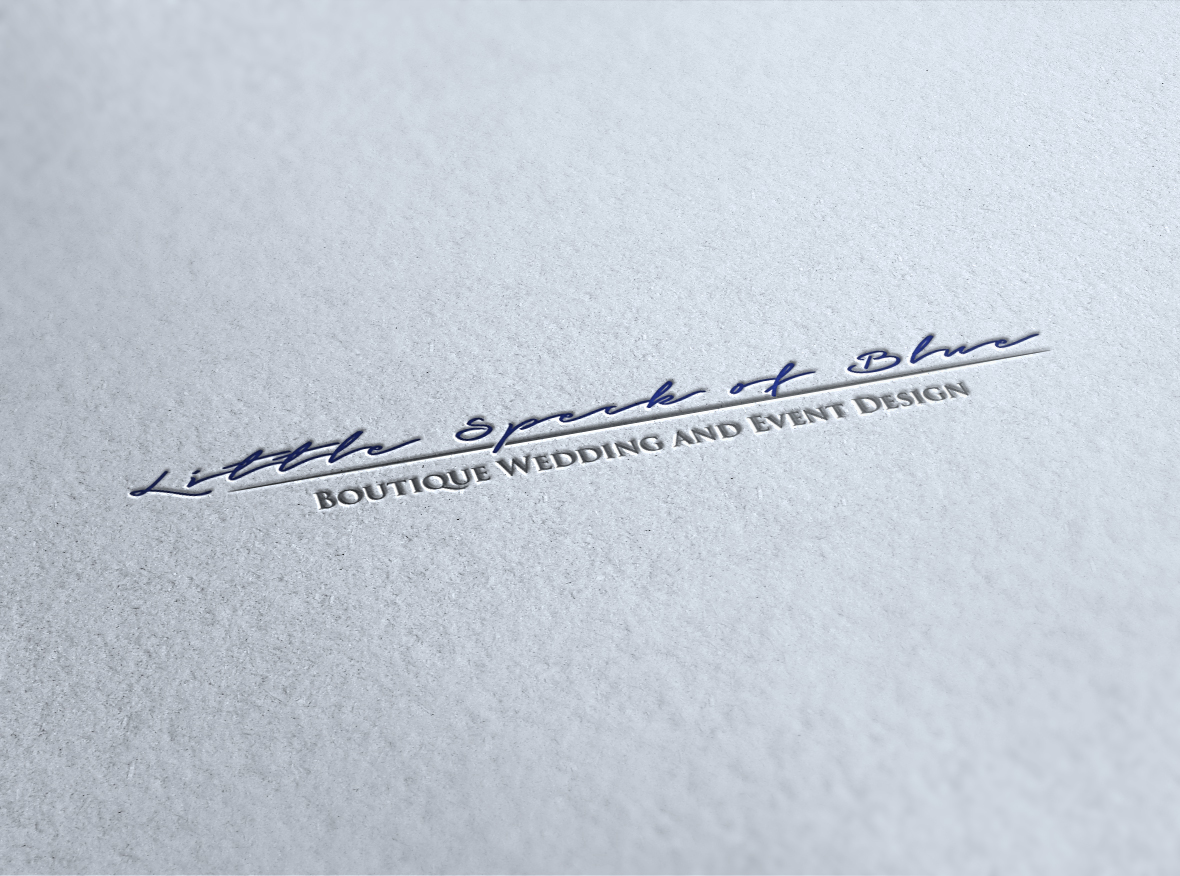 Little Speck of Blue
Boutique Wedding and Event Design